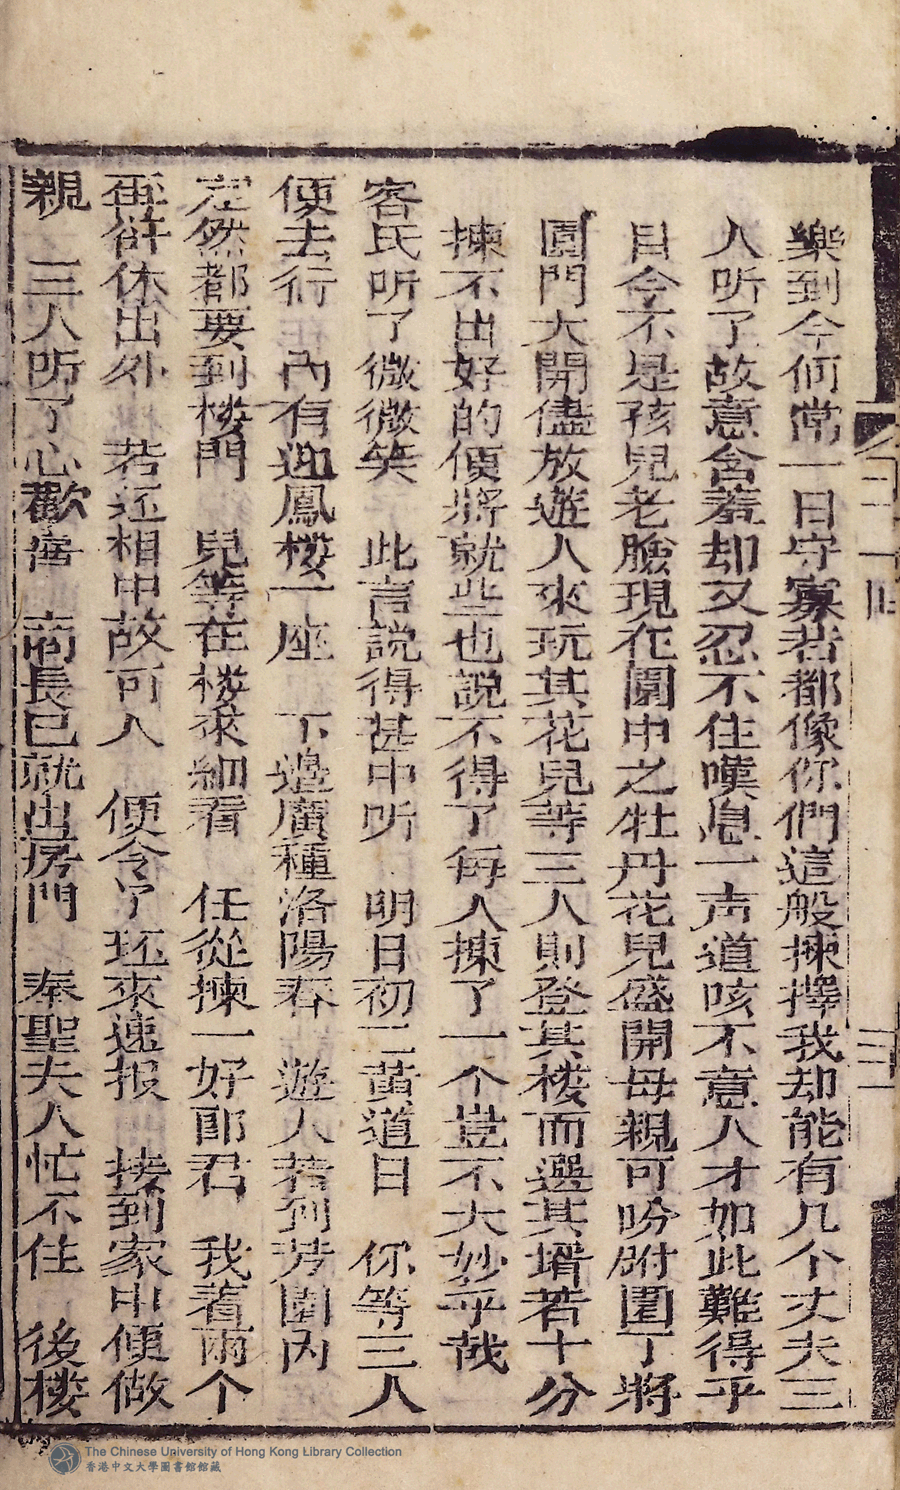 樂到今何常一日守寡若都像你們這般揀擇我却能有几个丈夫三
人听了故意含羞却又忍不住嘆息一声道咳不意人才如此難得乎
目今不是孩兒老臉現在園中之牡丹花兒盛開母親可吩咐園丁將
園門大開儘放遊人來玩其花兒等三人則登其楼而選其壻若十分
揀不出好的便將就些也說不得了每人揀了一个豈不大妙乎哉
客氏听了微微笑 此言説得甚中听 明日初二黄道日 你等三人
便去行 內有迎鳳楼一座 下邉廣種洛陽春 遊人若到芳園内
定然都要到楼門 兒等在楼來細看 任從揀一好郎君 我着兩个
再 休出外 若还相中故可人 便令了 來速报 接到家中便做
親 三人听了心歡喜 商長已就出房門 奉聖夫人忙不住 後楼
二十一回
三
The Chinese University of Hong Kong Library Collection
香港中文大學圖書館館藏